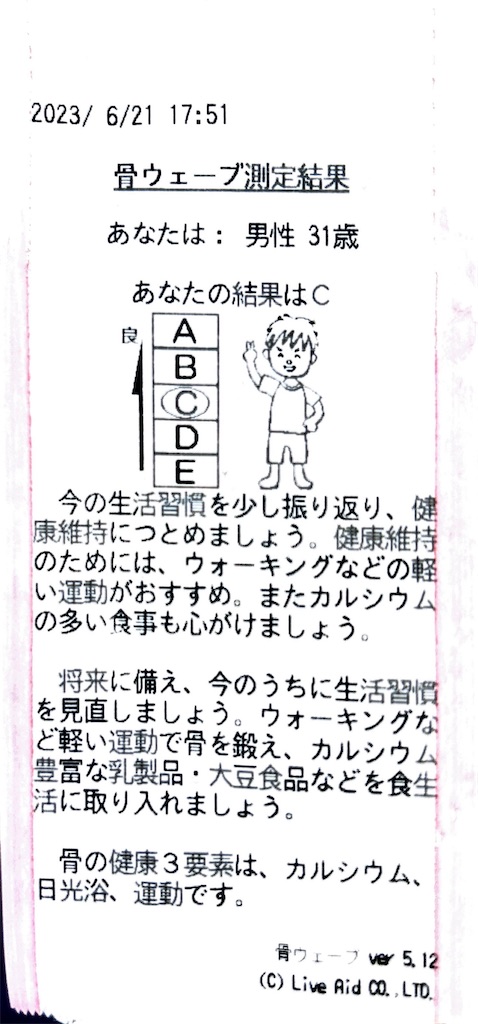 2023/ 6/21 17:51
骨ウェーブ測定結果
あなたは： 男性 31歳
あなたの結果はC
良
A
B
C
D
E
今の生活習慣を少し振り返り、健
康維持につとめましょう。健康維持
のためには、ウォーキングなどの軽
い運動がおすすめ。またカルシウム
の多い食事も心がけましょう。
将来に備え、今のうちに生活習慣
を見直しましょう。ウォーキングな
ど軽い運動で骨を鍛え、カルシウム
豊富な乳製品・大豆食品などを食生
活に取り入れましょう。
骨の健康３要素は、カルシウム、
日光浴、運動です。
骨ウェーブ ver 5.12
(C) Live Aid CO.,LTD.